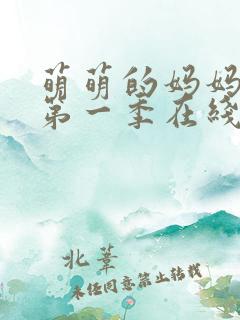 萌萌的妈妈
第一季在线
北苇
未经同意禁止转载